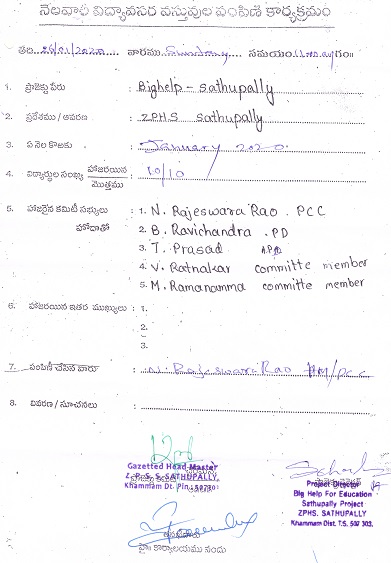 నెలవారీ విద్యావసర వస్తువుల పంపిణీ కార్యక్రమం
తేది 26/01/2020 వారము Sunday సమయం 11.00 am గం॥
1. ప్రాజెక్టు పేరు : Bighelp - Sathupally
2. ప్రదేశము / ఆవరణ : ZPHS Sathupally
3. ఏ నెల కొఱకు : January 2020.
4. విద్యార్థుల సంఖ్య హాజరయిన / మొత్తము : 10/10
5. హాజరైన కమిటీ సభ్యులు హోదాతో : 1. N. Rajeswara Rao. PCC
2. B. Ravichandra. PD
3. T. Prasad APD
4. V. Ratnakar committe member
5. M. Ramanamma committe member
6. హాజరయిన ఇతర ముఖ్యులు : 1.
2.
3.
7. పంపిణీ చేసిన వారు : N. Rajeswara Rao HM/PCC
8. వివరణ / సూచనలు :
Gazetted Head Master
Z.P.H.S. SATHUPALLY,
Khammam Dt. Pin:
Project Director
Big Help For Education
Sathupally Project
ZPHS. SATHUPALLY
Khammam Dist. T.S. 507 303.
కార్యాలయము నందు